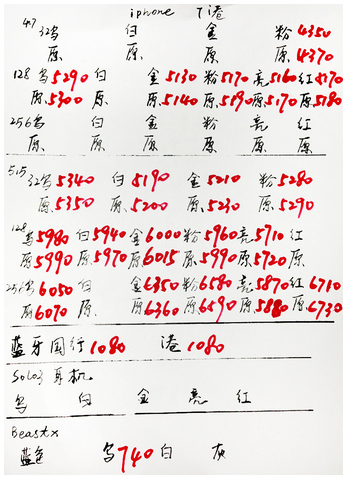 iphone 7港
47 32乌 白 金 粉4350
原 原 原 原4370
128乌5290 白 金5130 粉5170 亮5160 红5170
原5300 原 原5140 原5190 原5170 原5180
256乌 白 金 粉 亮 红
原 原 原 原 原 原
515 32乌5340 白5190 金5210 粉5280
原5350 原5200 原5230 原5290
128乌5980 白5940 金6000 粉5960 亮5710 红
原5990 原5970 原6015 原5990 原5720 原
256乌6050 白 金6350 粉6580 亮5870 红6710
原6070 原 原6360 原6590 原5880 原6730
蓝牙国行1080 港1080
Solo3耳机
乌 白 金 亮 红
Beastx
蓝色 乌740 白 灰